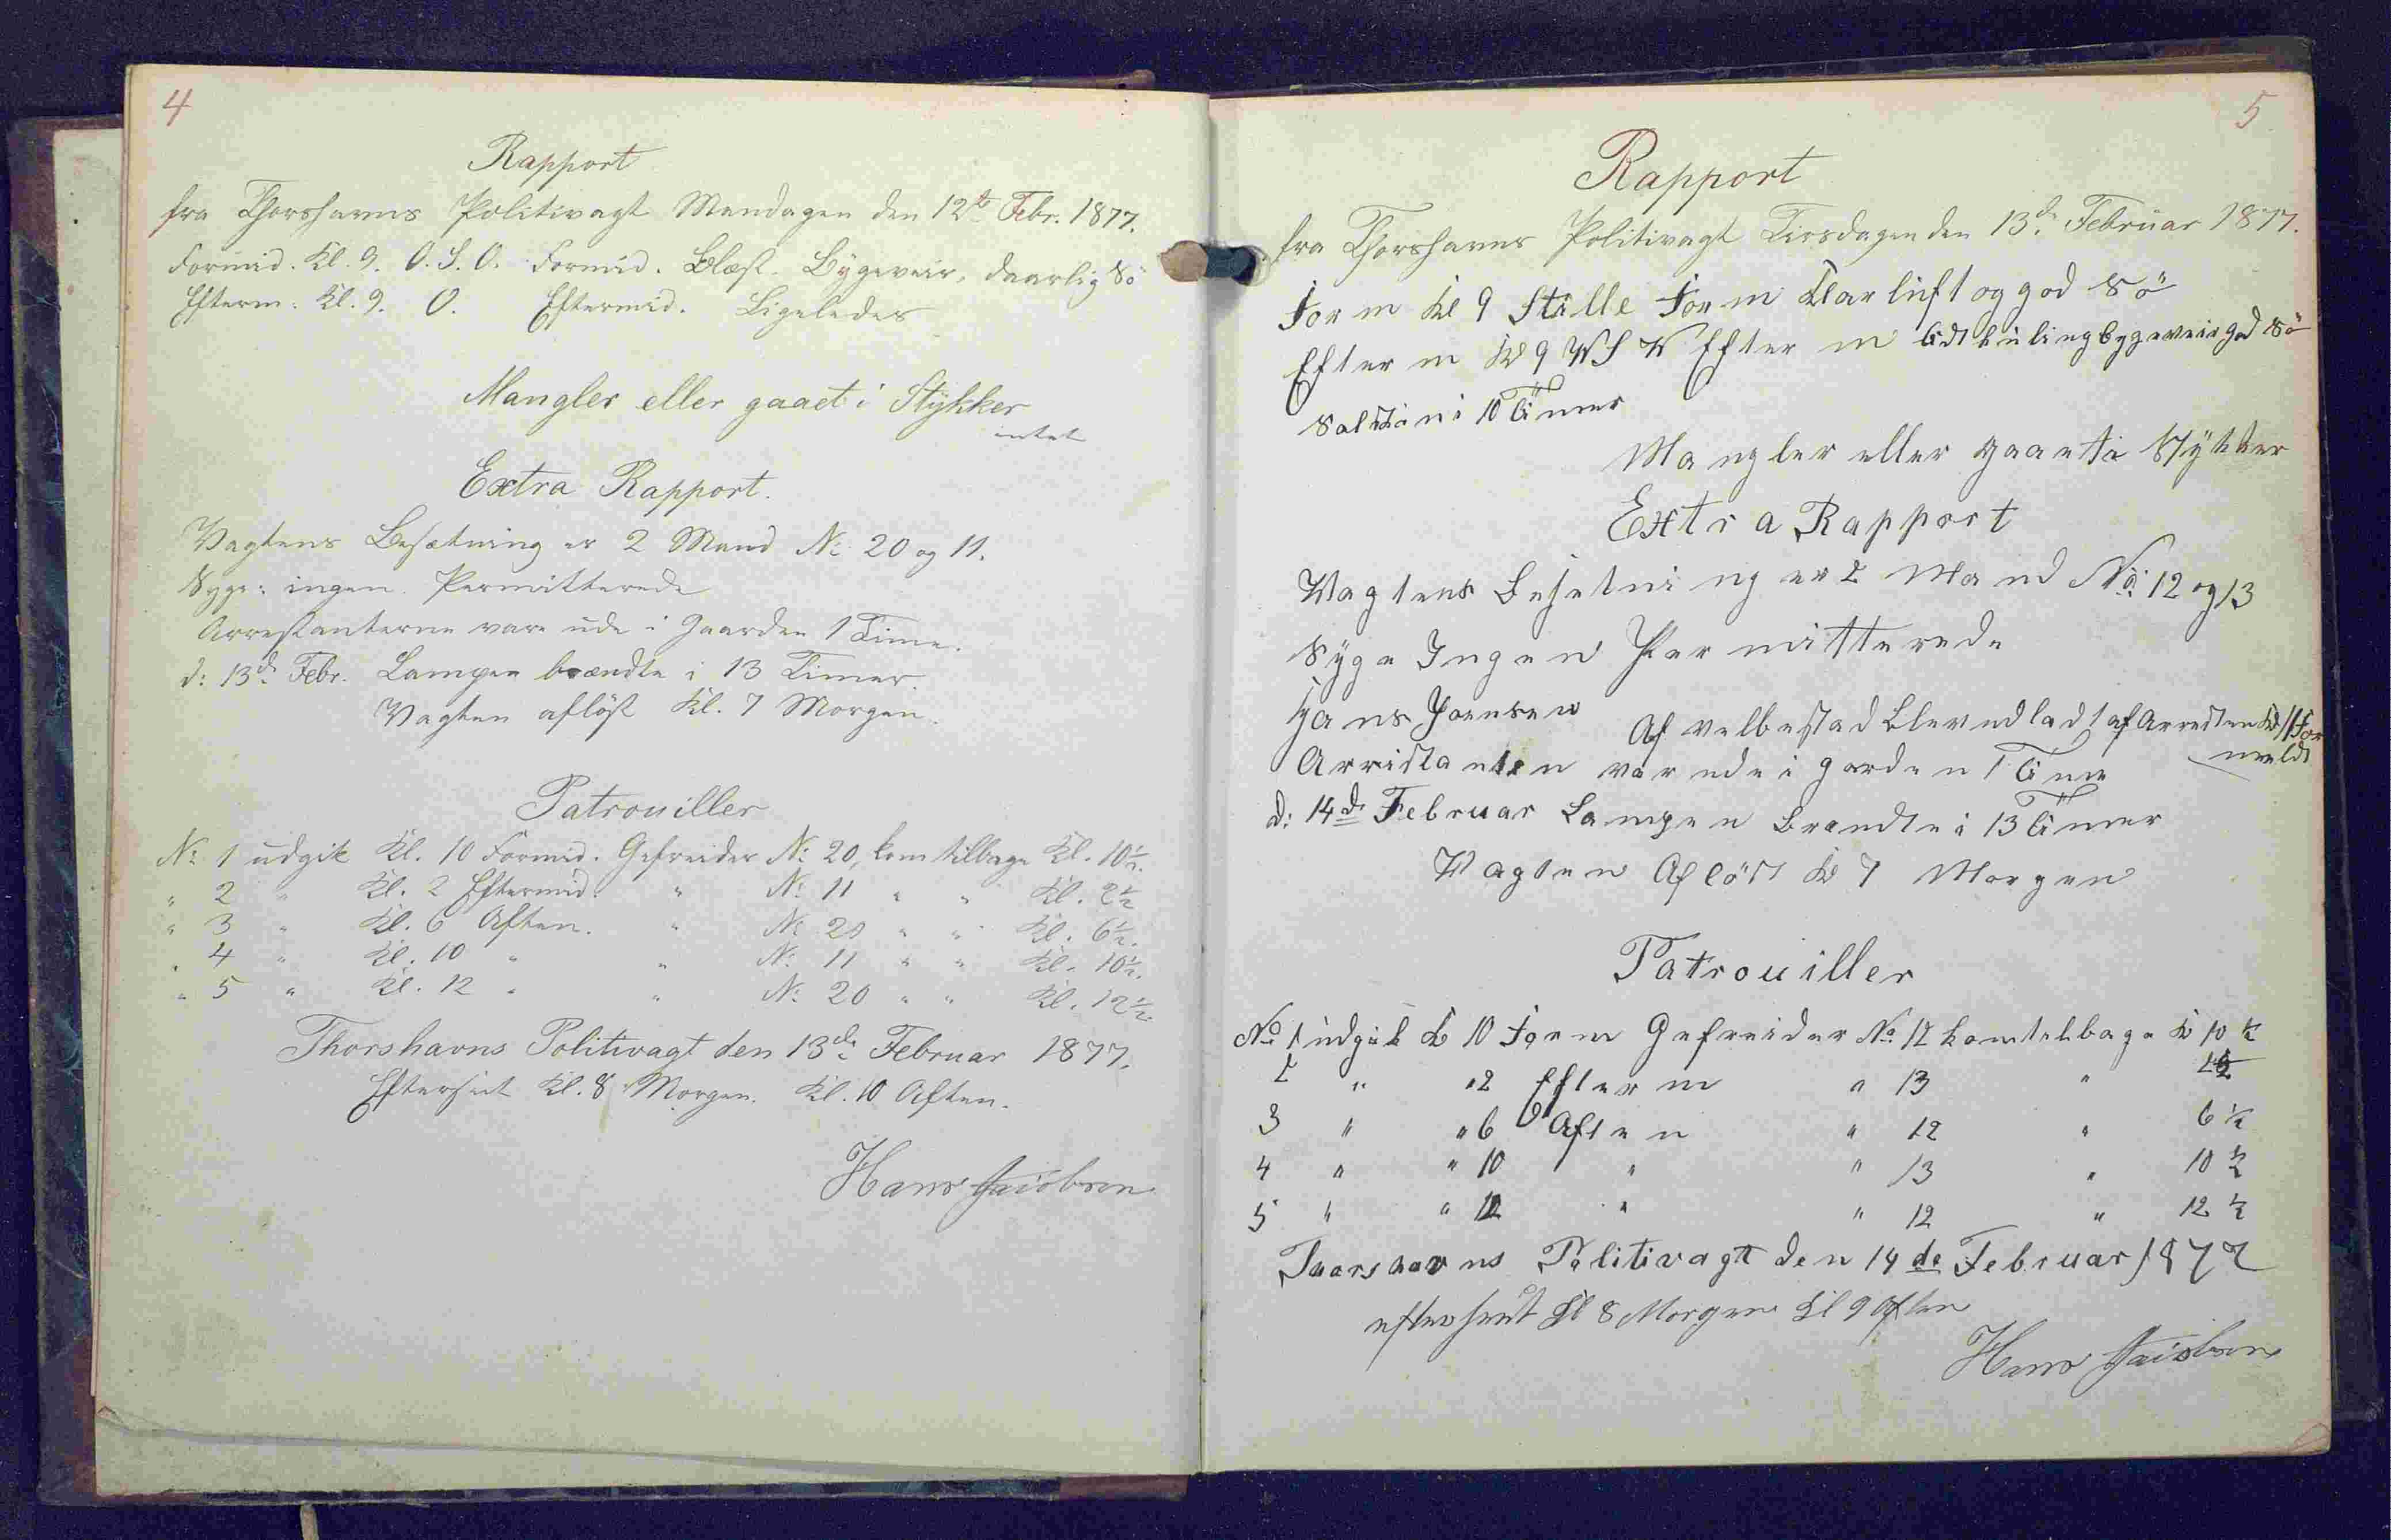 4
Rapport
fra Thorshavns Politivagt Mandagen den 12te Febr. 1877.
Formid. Kl. 9. O.S.O. Formid. Blæst. Bygeveir, daarlig Sö
Efterm. Kl. 9. O. Eftermid. Ligeledes
Mangler eller gaaet i Stykker
intet
Extra Rapport.
Vagtens Besætning er 2 Mand No 20 og 11.
Syge: ingen. Permitterede
Arrestanterne vare ude i Gaarden 1 Time.
d: 13de Febr. Lampen brændte i 13 Timer.
Vagten aflöst Kl. 7 Morgen.
Patrouiller
No 1 udgik Kl. 10 Formid. Gefreider No 20, kom tilbage Kl. 10½.
" 2 " Kl. 2 Eftermid. " No 11 " " Kl. 2½
" 3 " Kl. 6 Aften. " No 20 " " Kl. 6½.
" 4 " Kl. 10 " " No 11 " " Kl. 10½.
" 5 " Kl. 12 " " No 20 " " Kl. 12½.
Thorshavns Politivagt den 13de Februar 1877.
Efterseet Kl. 8 Morgen. Kl. 10 Aften.
Hans Jacobsen
5
Rapport
fra Thorshavns Politivagt Tirsdagen den 13de Februar 1877.
Form Kl 9 Stille Form Klar luft og god Sö
Efter m Kl 9 WSW Efter m lidt kuling bygeveir god Sö
i 10 Timer
Mangler eller gaaet i Stykker
Extra Rapport
Vagtens Besetning er 2 Mand No 12 og 13
Syge Ingen Permitterede
Hans Joensen Af velbestad blev udladt af Arresten Kl 11 For
meldt
Arristanten var ude i garden 1 Time
d: 14de Februar Lampen Brendte i 13 Timer
Vagten Aflöst Kl 7 Morgen
Patrouiller
No 1 udgik K 10 Form Gefreider No 12 kom telbage K 10 ½
2 " " 2 Efter m " 13 " 2½
3 " " 6 Aften " 12 " 6 ½
4 " " 10 " " 13 " 10 ½
5 " " 12 " " 12 " 12 ½
Thorshavns Politivagt den 14de Februar 1877
efterseet Kl 8 Morgen Kl 9 Aften
Hans Jacobsen